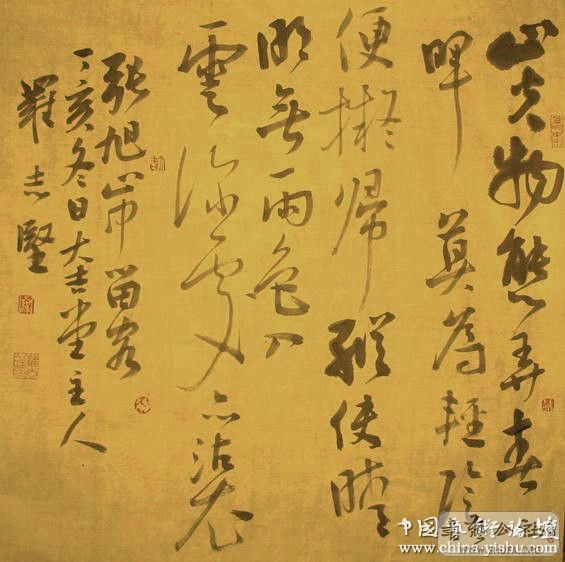 山光物態弄春
暉莫為輕陰
便擬帰縱使晴
明無雨色入
雲深處亦沾衣
張旭山中留客
丁亥冬日大吉堂主人
羅志堅
www.china-yishu.com